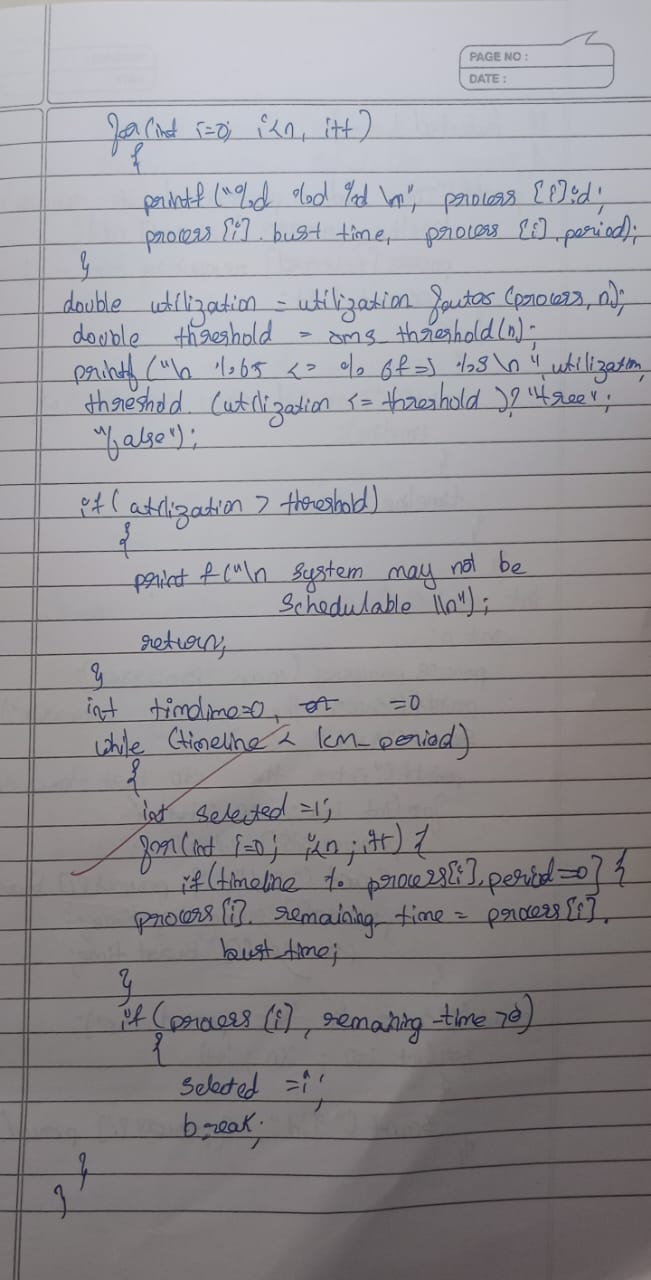 PAGE NO :
DATE :
for(int i=0; i<n, i++)
{
printf ("%d %d %d \n", process [i].id;
process [i]. bust time, process [i]. period);
}
double utilization = utilization factor (process, n);
double threshold = rms threshold(n);
printf ("\n %.6f <= % 6f => %s \n", utilization,
threshold. (utilization <= threshold )? "true";
"false");
if ( utilization > threshold)
{
print f ("\n System may not be
Schedulable \\n");
return;
}
int timeline=0, =0
while (timeline < lcm_period)
{
int selected =1;
for(int i=0; i<n ; i++) {
if(timeline % process[i], period==0} {
process [i]. remaining time = process [i].
bust time;
}
if (process [i], remaining -time >0)
{
selected = i ;
break;
}
}